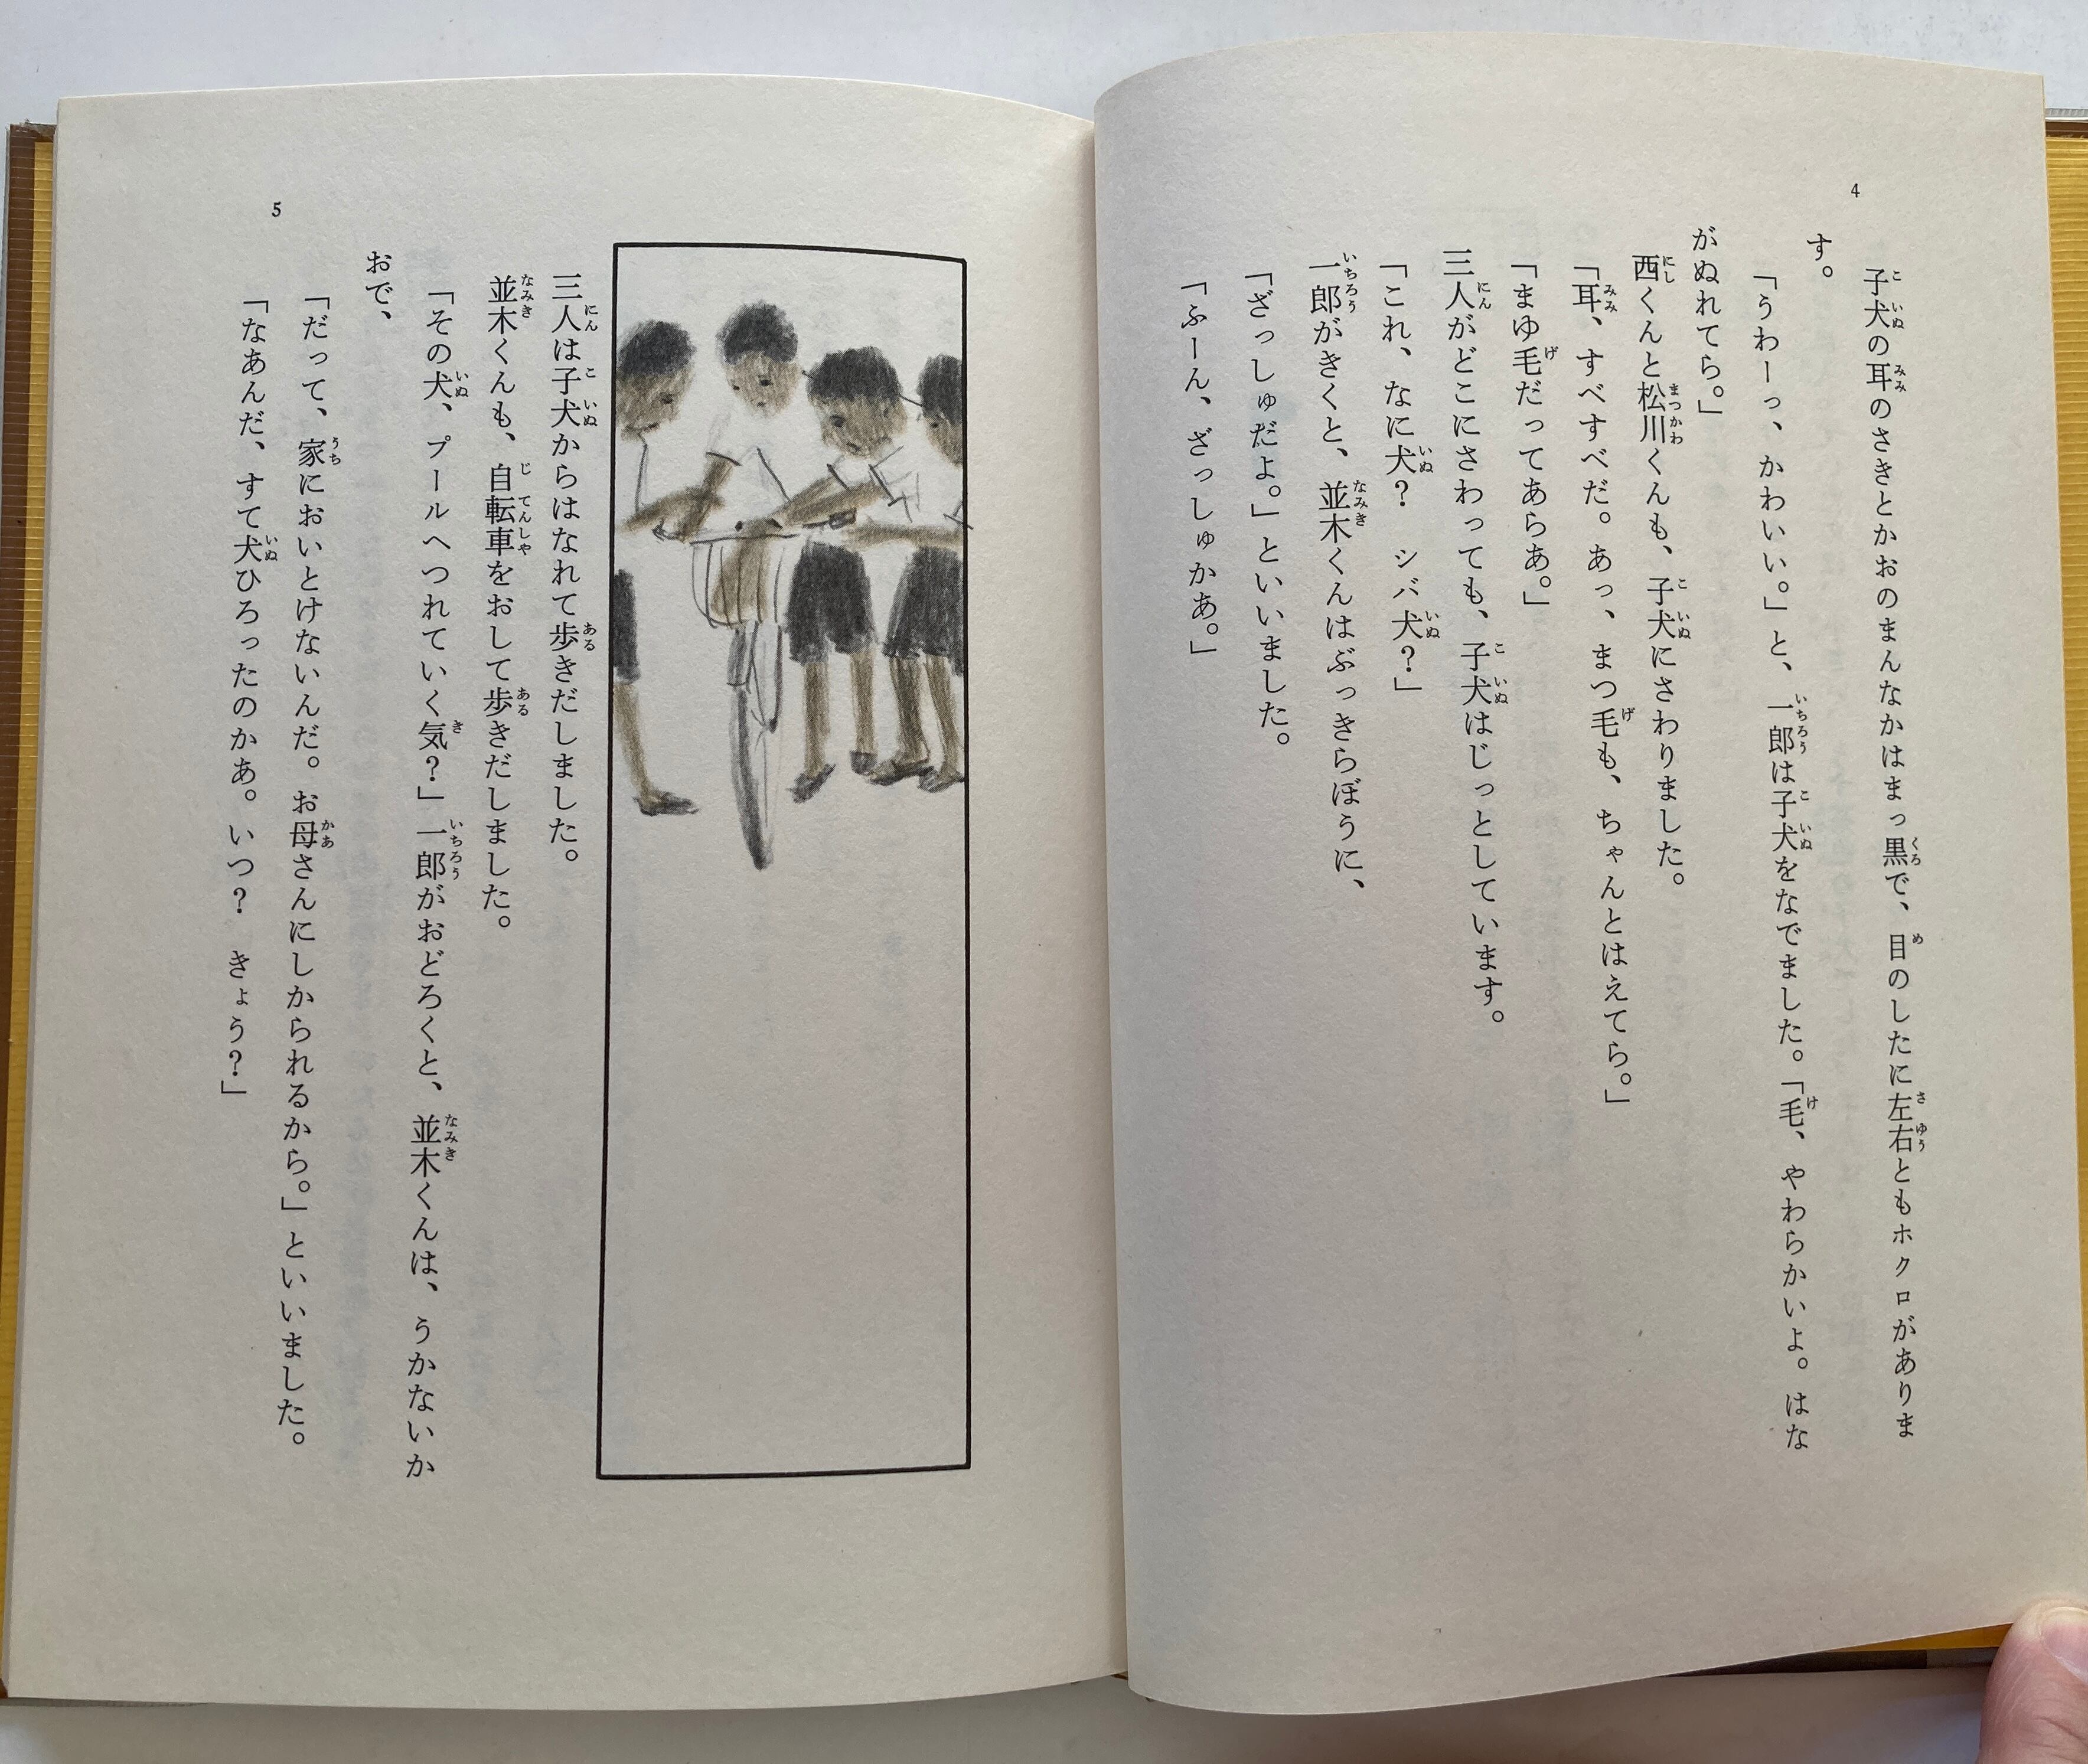 4
子犬の耳のさきとかおのまんなかはまっ黒で、目のしたに左右ともホクロがありま
す。
「うわーっ、かわいい。」と、一郎は子犬をなでました。「毛、やわらかいよ。はな
がぬれてら。」
西くんと松川くんも、子犬にさわりました。
「耳、すべすべだ。あっ、まつ毛も、ちゃんとはえてら。」
「まゆ毛だってあらあ。」
三人がどこにさわっても、子犬はじっとしています。
「これ、なに犬？　シバ犬？」
一郎がきくと、並木くんはぶっきらぼうに、
「ざっしゅだよ。」といいました。
「ふーん、ざっしゅかあ。」
5
三人は子犬からはなれて歩きだしました。
並木くんも、自転車をおして歩きだしました。
「その犬、プールへつれていく気？」一郎がおどろくと、並木くんは、うかないか
おで、
「だって、家においとけないんだ。お母さんにしかられるから。」といいました。
「なあんだ、すて犬ひろったのかあ。いつ？　きょう？」